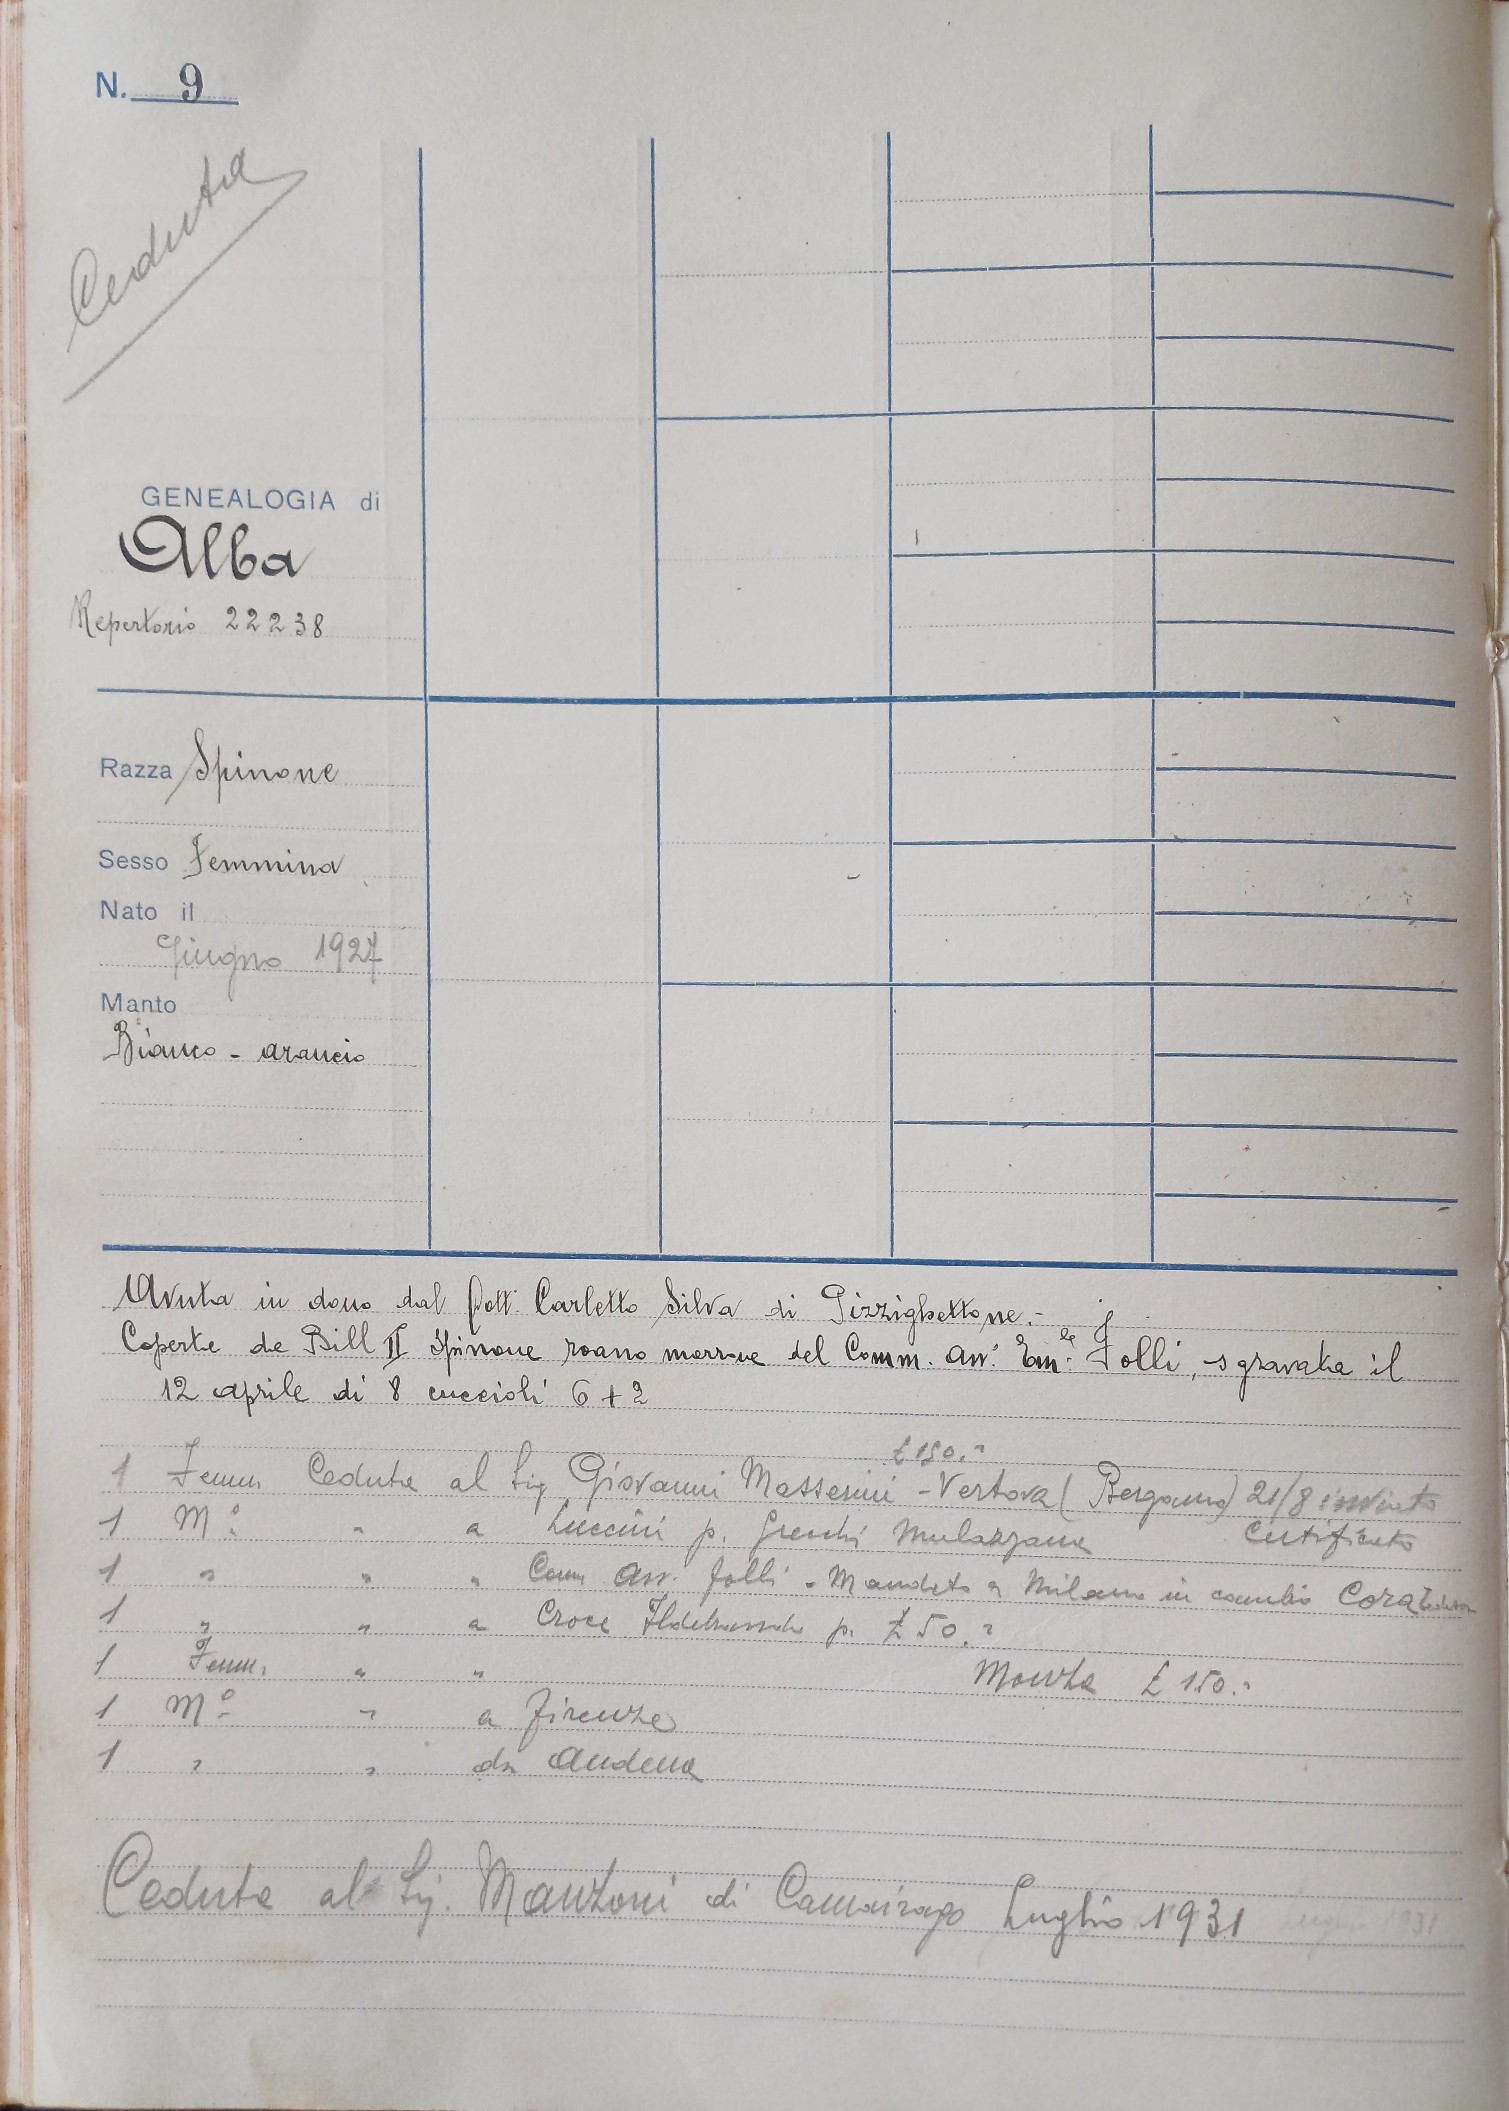 N. 9
Ceduta
GENEALOGIA di
Alba
Repertorio 22238
Razza Spinone
Sesso Femmina
Nato il
Giugno 1927
Manto
Bianco - arancio
Avuta in dono dal Dott. Carletto Silva di Pizzighettone.-
Coperta da Bill II Spinone roano marrone del Comm. Avv. Em.le Folli, sgravata il
12 aprile di 8 cuccioli 6 + 2
£ 150.=
1 Femm. Ceduta al Sig. Giovanni Masserini - Vertova (Bergamo) 21/8 inviato
1 M.o " a Luccini p. Mulazzana Certificato
1 " " " Comm Avv. Folli - Mandato a Milano in cambio Cora
1 " " a Croce Ildebrando p. £ 50.=
1 Femm. " " Monza £ 150.=
1 M.o " a Firenze
1 " " da Andena
Ceduta al Sig. Manzoni di Camairago Luglio 1931